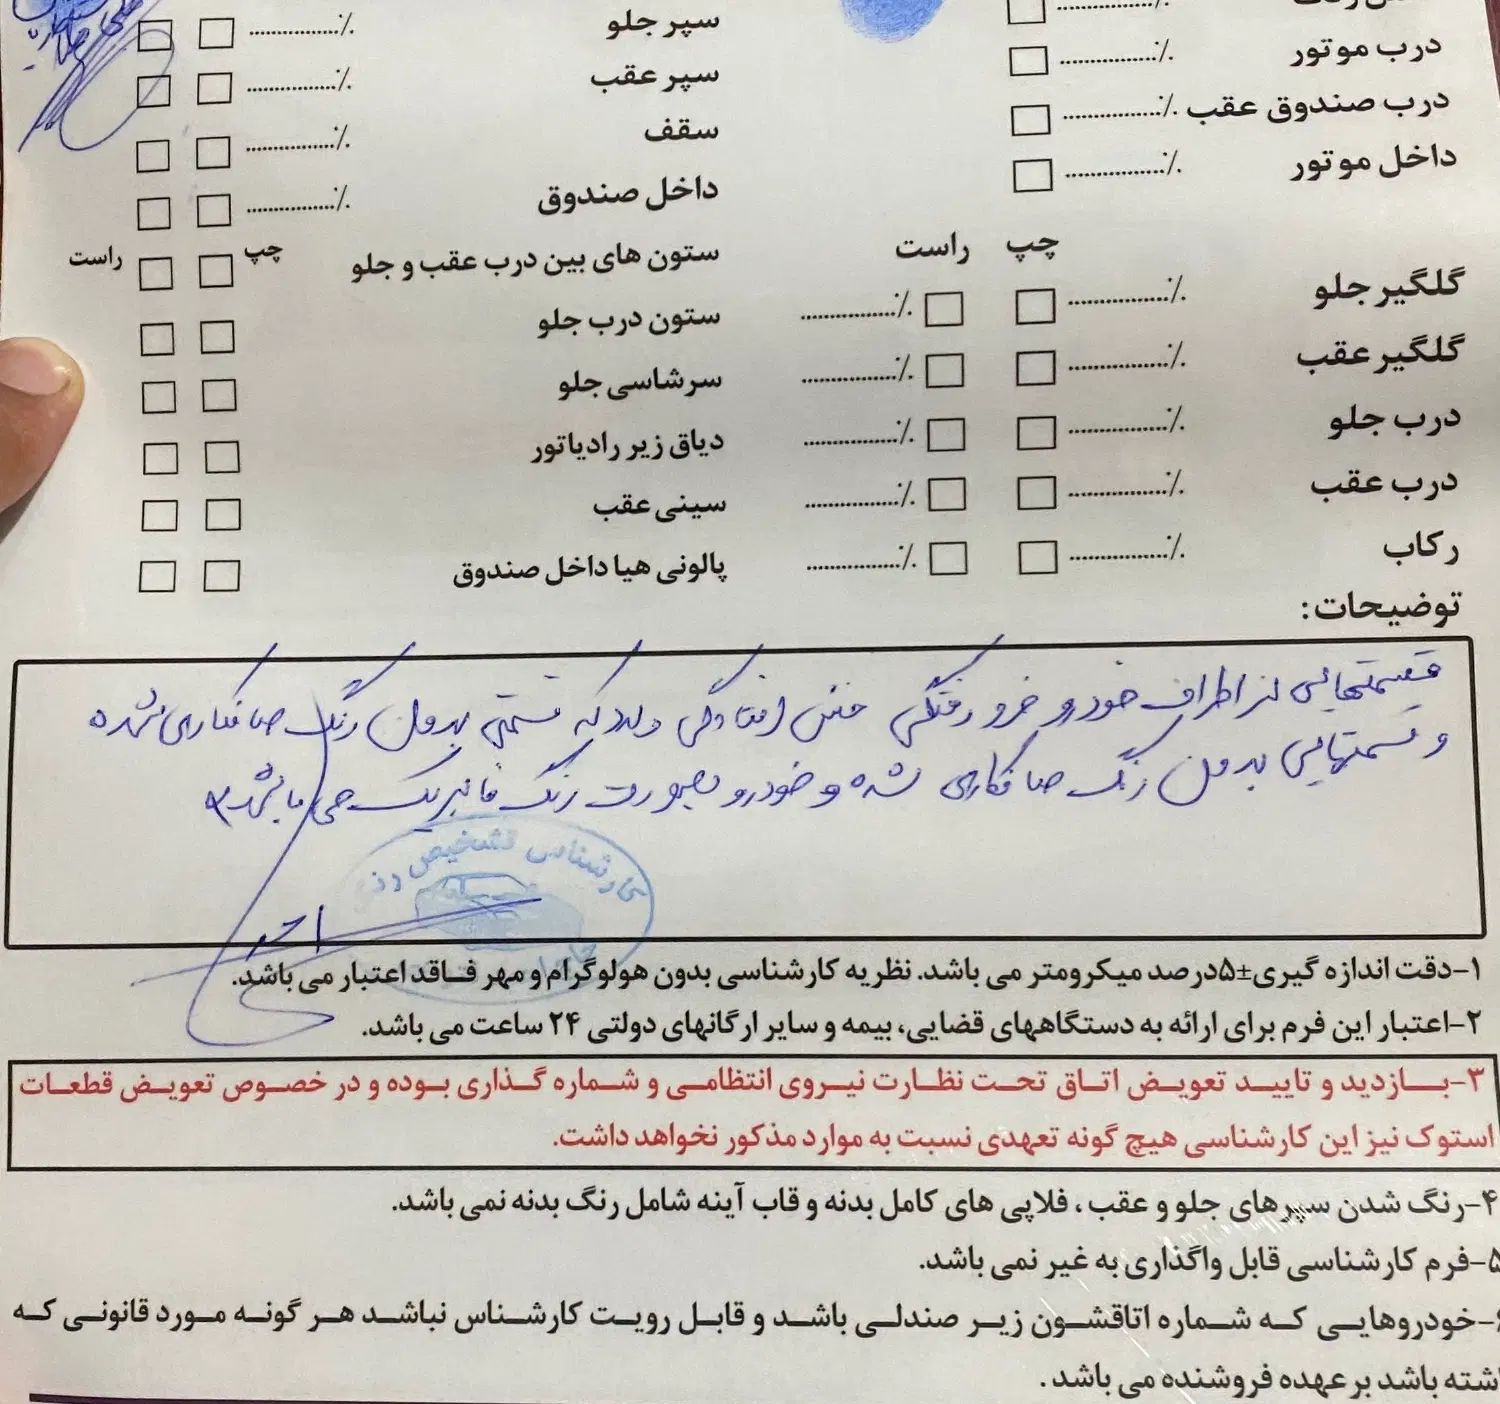 سپر جلو ٪.................
درب موتور ٪.................
سپر عقب ٪.................
درب صندوق عقب ٪.................
سقف ٪.................
داخل موتور ٪.................
داخل صندوق ٪.................
چپ راست
ستون های بین درب عقب و جلو چپ راست
گلگیر جلو ٪................. ٪.................
ستون درب جلو
گلگیر عقب ٪................. ٪.................
سرشاسی جلو
درب جلو ٪................. ٪.................
دیاق زیر رادیاتور
درب عقب ٪................. ٪.................
سینی عقب
رکاب ٪................. ٪.................
پالونی هیا داخل صندوق
توضیحات:
قسمتهایی از اطراف خودرو فرو رفتگی خش افتادگی دارد که قسمتی بدون رنگ صافکاری شده
و قسمتهایی بدون رنگ صافکاری نشده و خودرو بصورت رنگ فابریک می باشد
کارشناس تشخیص رنگ
۱-دقت اندازه گیری±۵درصد میکرومتر می باشد. نظریه کارشناسی بدون هولوگرام و مهر فـاقد اعتبار می باشد.
۲-اعتبار این فرم برای ارائه به دستگاههای قضایی، بیمه و سایر ارگانهای دولتی ۲۴ ساعت می باشد.
۳-بـازدید و تایید تعویض اتاق تحت نظارت نیروی انتظامی و شماره گذاری بوده و در خصوص تعویض قطعات
استوک نیز این کارشناسی هیچ گونه تعهدی نسبت به موارد مذکور نخواهد داشت.
۴-رنگ شدن سپرهای جلو و عقب ، فلاپی های کامل بدنه و قاب آینه شامل رنگ بدنه نمی باشد.
۵-فرم کارشناسی قابل واگذاری به غیر نمی باشد.
۶-خودروهایی که شماره اتاقشون زیر صندلی باشد و قابل رویت کارشناس نباشد هر گونه مورد قانونی که
اشته باشد برعهده فروشنده می باشد.